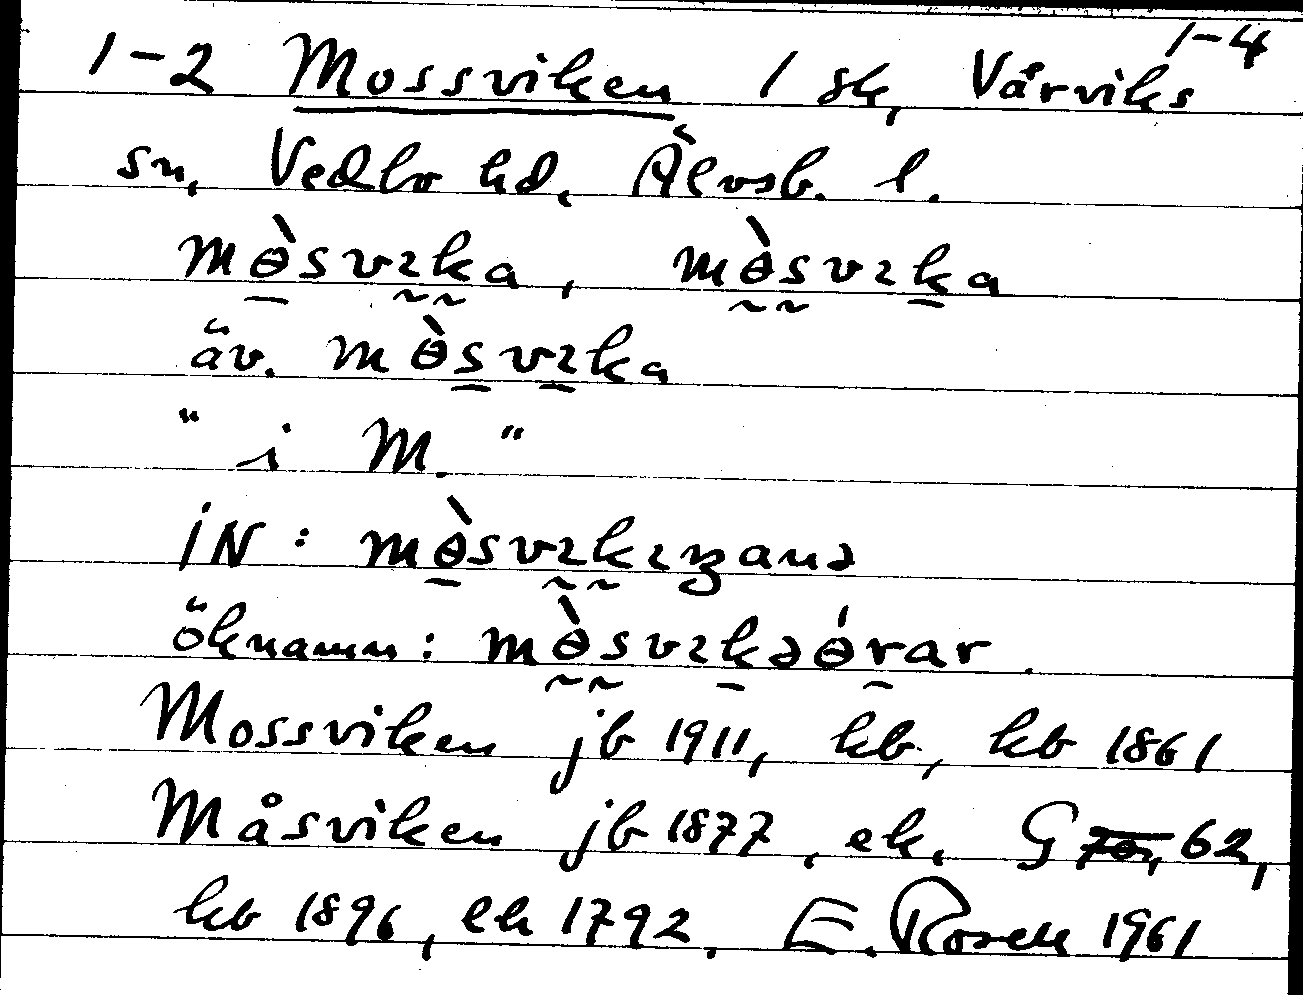 1-4
1-2 Mossviken 1 sk, Vårviks
sn, Vedbo hd, Älvsb. l.
mɵ̀svɪka, mɵ̀svɪka
äv. mɵ̀svɪka
"i M."
iN: mɵ̀svɪkɪŋanə
öknamn: mɵ̀svɪkəɵ́rar.
Mossviken jb 1911, kb, kb 1861
Måsviken jb 1877, ek, G 62,
kb 1896, ek 1792. E. Rosell 1961